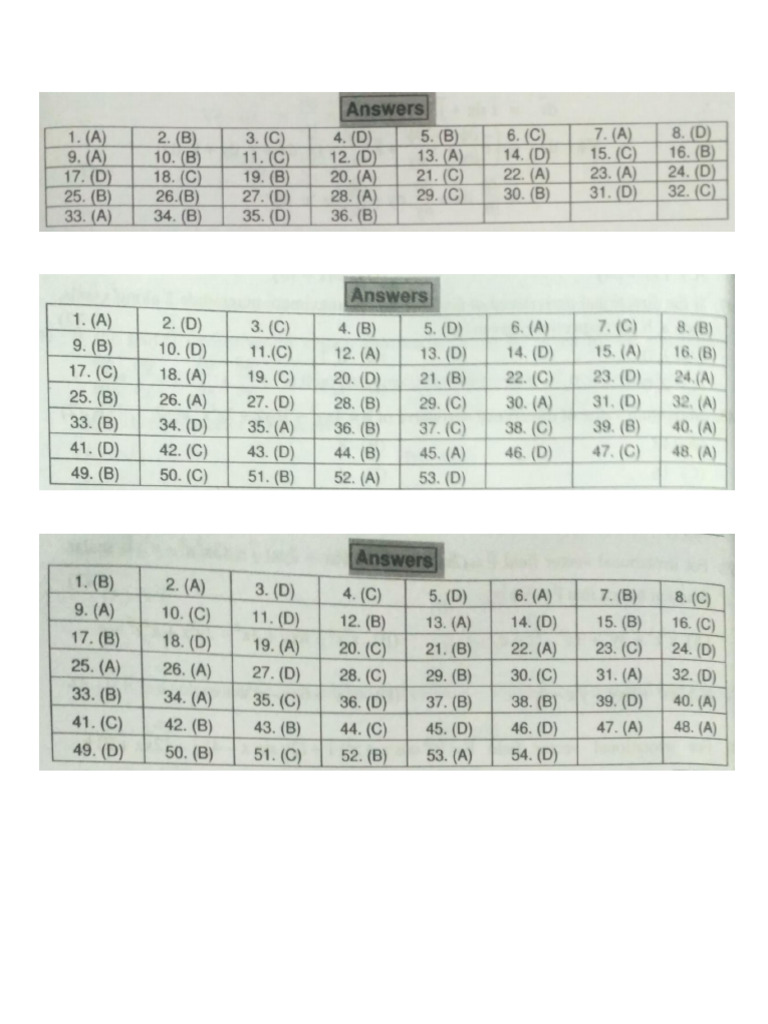 Answers
1. (A) 2. (B) 3. (C) 4. (D) 5. (B) 6. (C) 7. (A) 8. (D)
9. (A) 10. (B) 11. (C) 12. (D) 13. (A) 14. (D) 15. (C) 16. (B)
17. (D) 18. (C) 19. (B) 20. (A) 21. (C) 22. (A) 23. (A) 24. (D)
25. (B) 26.(B) 27. (D) 28. (A) 29. (C) 30. (B) 31. (D) 32. (C)
33. (A) 34. (B) 35. (D) 36. (B)
Answers
1. (A) 2. (D) 3. (C) 4. (B) 5. (D) 6. (A) 7. (C) 8. (B)
9. (B) 10. (D) 11.(C) 12. (A) 13. (D) 14. (D) 15. (A) 16. (B)
17. (C) 18. (A) 19. (C) 20. (D) 21. (B) 22. (C) 23. (D) 24.(A)
25. (B) 26. (A) 27. (D) 28. (B) 29. (C) 30. (A) 31. (D) 32. (A)
33. (B) 34. (D) 35. (A) 36. (B) 37. (C) 38. (C) 39. (B) 40. (A)
41. (D) 42. (C) 43. (D) 44. (B) 45. (A) 46. (D) 47. (C) 48. (A)
49. (B) 50. (C) 51. (B) 52. (A) 53. (D)
Answers
1. (B) 2. (A) 3. (D) 4. (C) 5. (D) 6. (A) 7. (B) 8. (C)
9. (A) 10. (C) 11. (D) 12. (B) 13. (A) 14. (D) 15. (B) 16. (C)
17. (B) 18. (D) 19. (A) 20. (C) 21. (B) 22. (A) 23. (C) 24. (D)
25. (A) 26. (A) 27. (D) 28. (C) 29. (B) 30. (C) 31. (A) 32. (D)
33. (B) 34. (A) 35. (C) 36. (D) 37. (B) 38. (B) 39. (D) 40. (A)
41. (C) 42. (B) 43. (B) 44. (C) 45. (D) 46. (D) 47. (A) 48. (A)
49. (D) 50. (B) 51. (C) 52. (B) 53. (A) 54. (D)